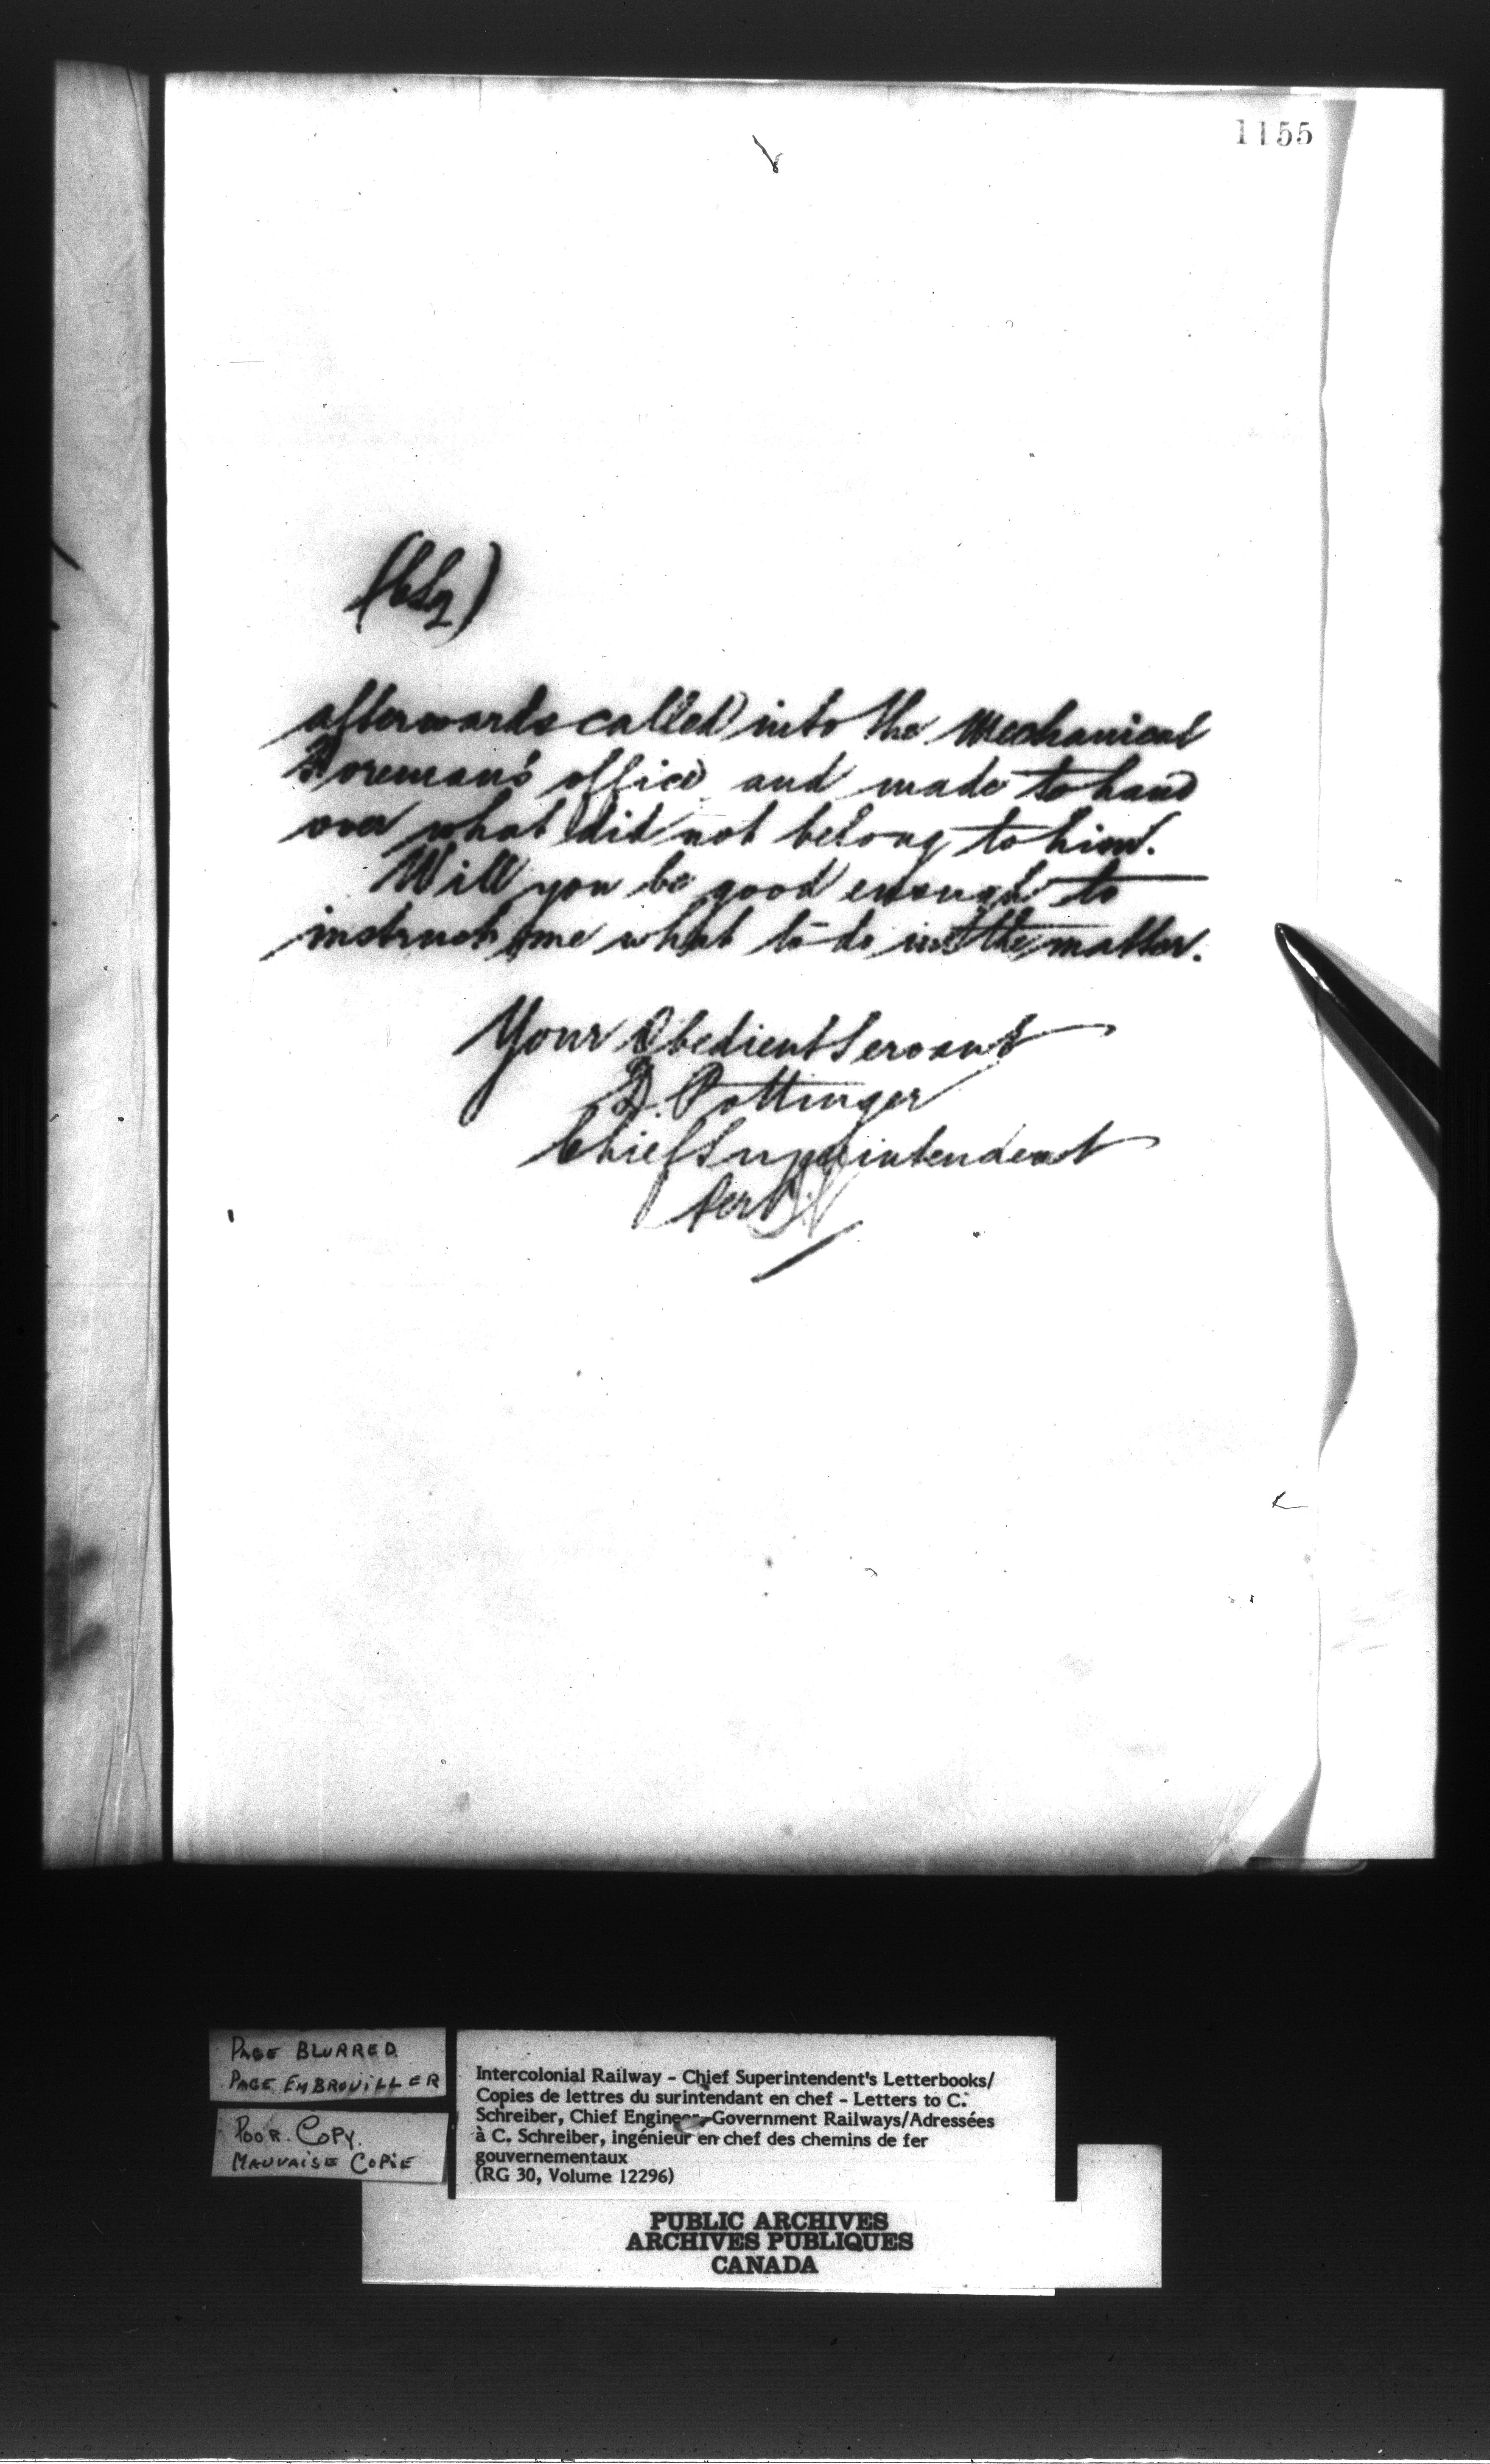 1155
afterwards called into the Mechanical
Foreman's office and made to hand
over what did not belong to him.
Will you be good enough to
instruct me what to do in the matter.
Your Obedient Servant
D. Pottinger
Chief Superintendent
Per
PAGE BLURRED
PAGE EMBROUILLER
POOR COPY.
MAUVAISE COPIE
Intercolonial Railway - Chief Superintendent's Letterbooks/
Copies de lettres du surintendant en chef - Letters to C.
Schreiber, Chief Engineer-Government Railways/Adressées
à C. Schreiber, ingénieur en chef des chemins de fer
gouvernementaux
(RG 30, Volume 12296)
PUBLIC ARCHIVES
ARCHIVES PUBLIQUES
CANADA